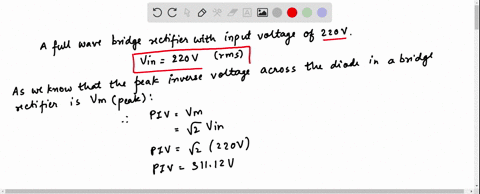 A full wave bridge rectifier with input voltage of 220V.
Vin = 220V (rms)
As we know that the peak inverse voltage across the diode in a bridge
rectifier is Vm (peak):
∴ PIV = Vm
= √2 Vin
PIV = √2 (220V)
PIV = 311.12V